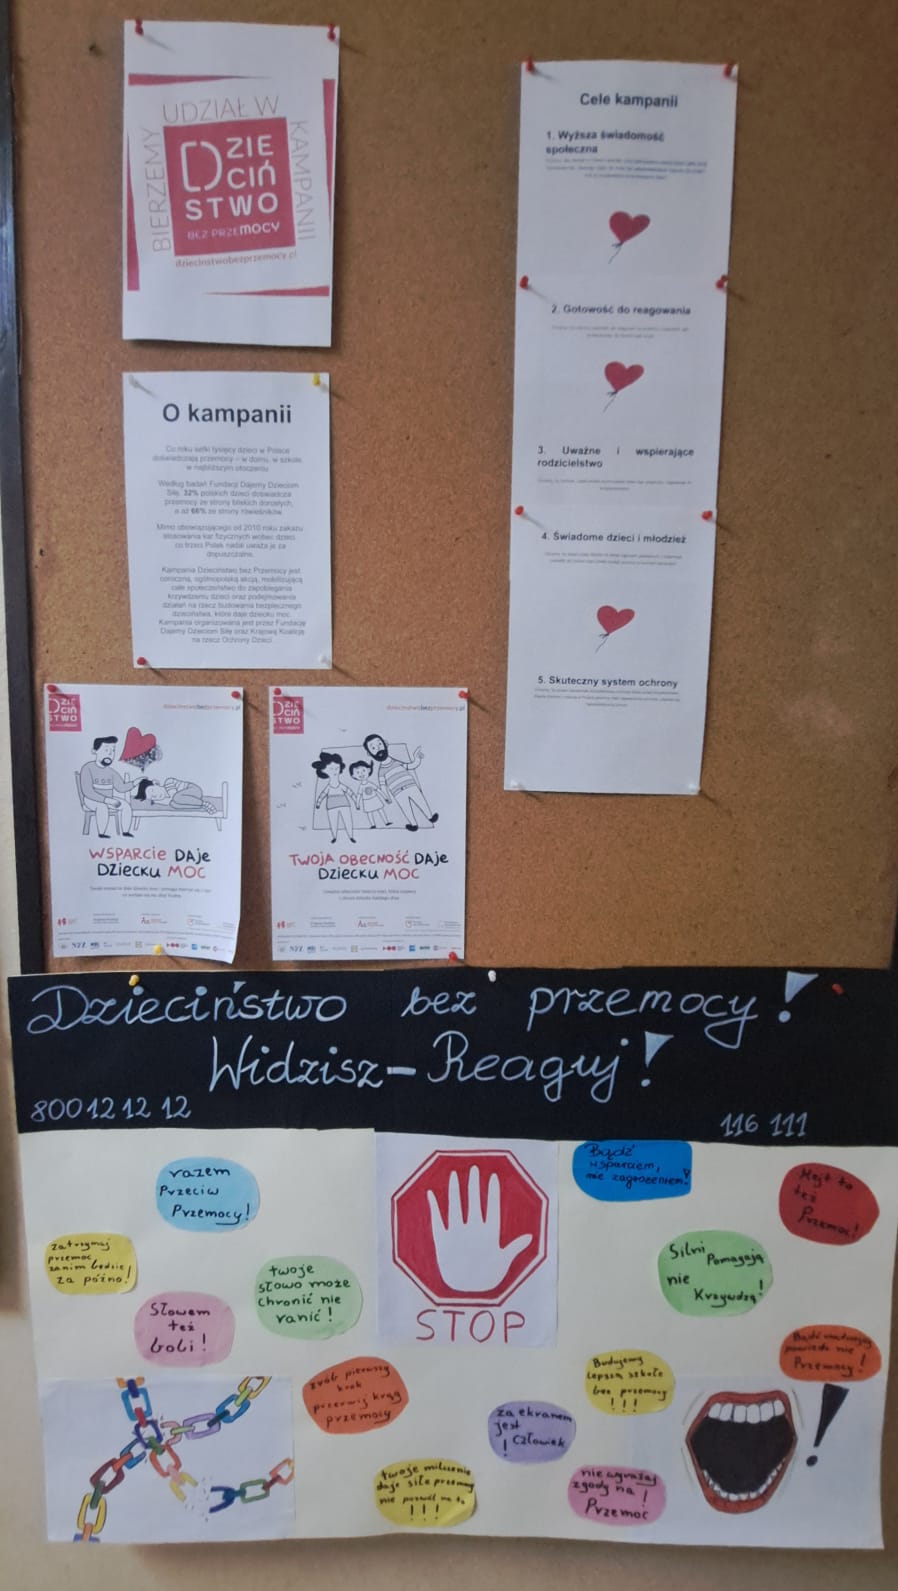 BIERZEMY
UDZIAŁ W
KAMPANII
DZIE
CIŃ
STWO
BEZ PRZEMOCY
dziecinstwobezprzemocy.pl
Cele kampanii
1. Wyższa świadomość
społeczna
2. Gotowość do reagowania
3. Uważne i wspierające
rodzicielstwo
4. Świadome dzieci i młodzież
5. Skuteczny system ochrony
O kampanii
Co roku setki tysięcy dzieci w Polsce
doświadczają przemocy – w domu, w szkole,
w najbliższym otoczeniu.
Według badań Fundacji Dajemy Dzieciom
Siłę, 32% polskich dzieci doświadcza
przemocy ze strony bliskich dorosłych,
a aż 66% ze strony rówieśników.
Mimo obowiązującego od 2010 roku zakazu
stosowania kar fizycznych wobec dzieci,
co trzeci Polak nadal uważa je za
dopuszczalne.
Kampania Dzieciństwo bez Przemocy jest
coroczną, ogólnopolską akcją, mobilizującą
całe społeczeństwo do zapobiegania
krzywdzeniu dzieci oraz podejmowania
działań na rzecz budowania bezpiecznego
dzieciństwa, które daje dziecku moc.
Kampania organizowana jest przez Fundację
Dajemy Dzieciom Siłę oraz Krajową Koalicję
na rzecz Ochrony Dzieci.
DZIE
CIŃ
STWO
dziecinstwobezprzemocy.pl
WSPARCIE DAJE
DZIECKU MOC
DZIE
CIŃ
STWO
dziecinstwobezprzemocy.pl
TWOJA OBECNOŚĆ DAJE
DZIECKU MOC
Dzieciństwo bez przemocy!
Widzisz – Reaguj!
800 12 12 12
116 111
razem
Przeciw
Przemocy!
zatrzymaj
przemoc,
zanim będzie
za późno!
Słowem
też
boli!
twoje
słowo może
chronić nie
ranić!
STOP
Bądź
wsparciem,
nie zagrożeniem!
Hejt to
też
Przemoc!
Silni Pomagają
nie
Krzywdzą!
Przemocy!
zrób pierwszy
krok
przerwij krąg
przemocy
Budujemy
lepszą szkołę
bez przemocy
!!!
za ekranem
jest
Człowiek!
twoje milczenie
daje siłę przemocy
nie pozwól na to
!!!
nie wyrażaj
zgody na!
Przemoc